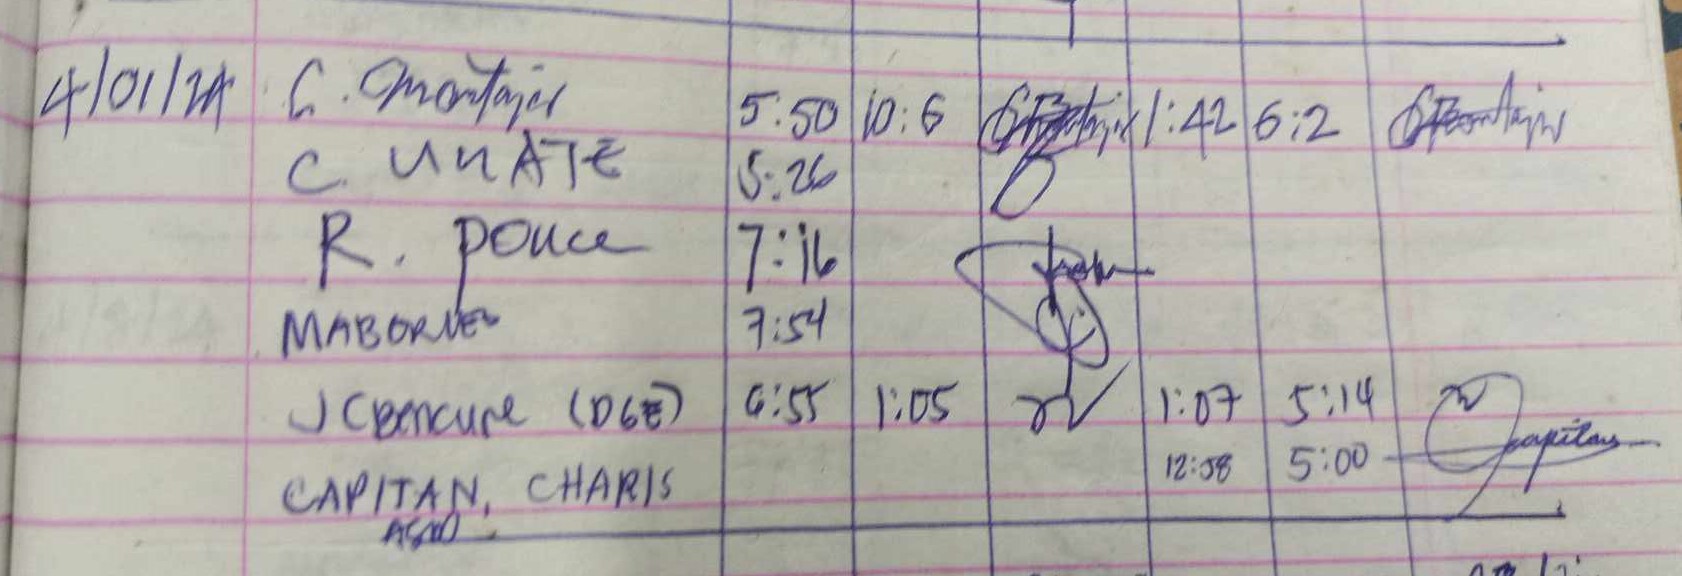 4/01/24 C. Montajes 5:50 10:6 1:42 6:2
C. UNATE 5:26
R. ponce 7:16
MABORNE 7:54
JCBencure (DGE) 6:55 1:05 1:07 5:14
CAPITAN, CHARIS 12:58 5:00 Capitan